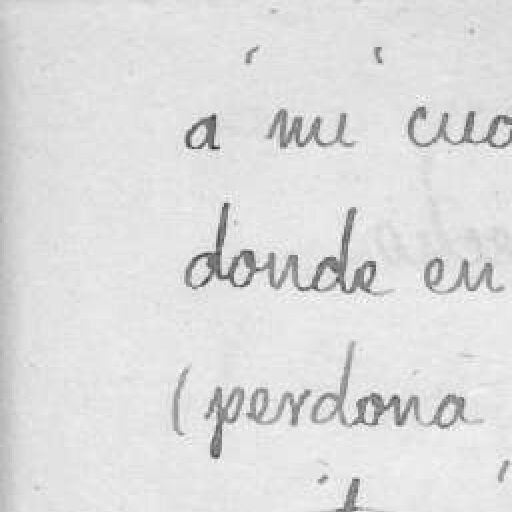 a mi
donde en
(perdona